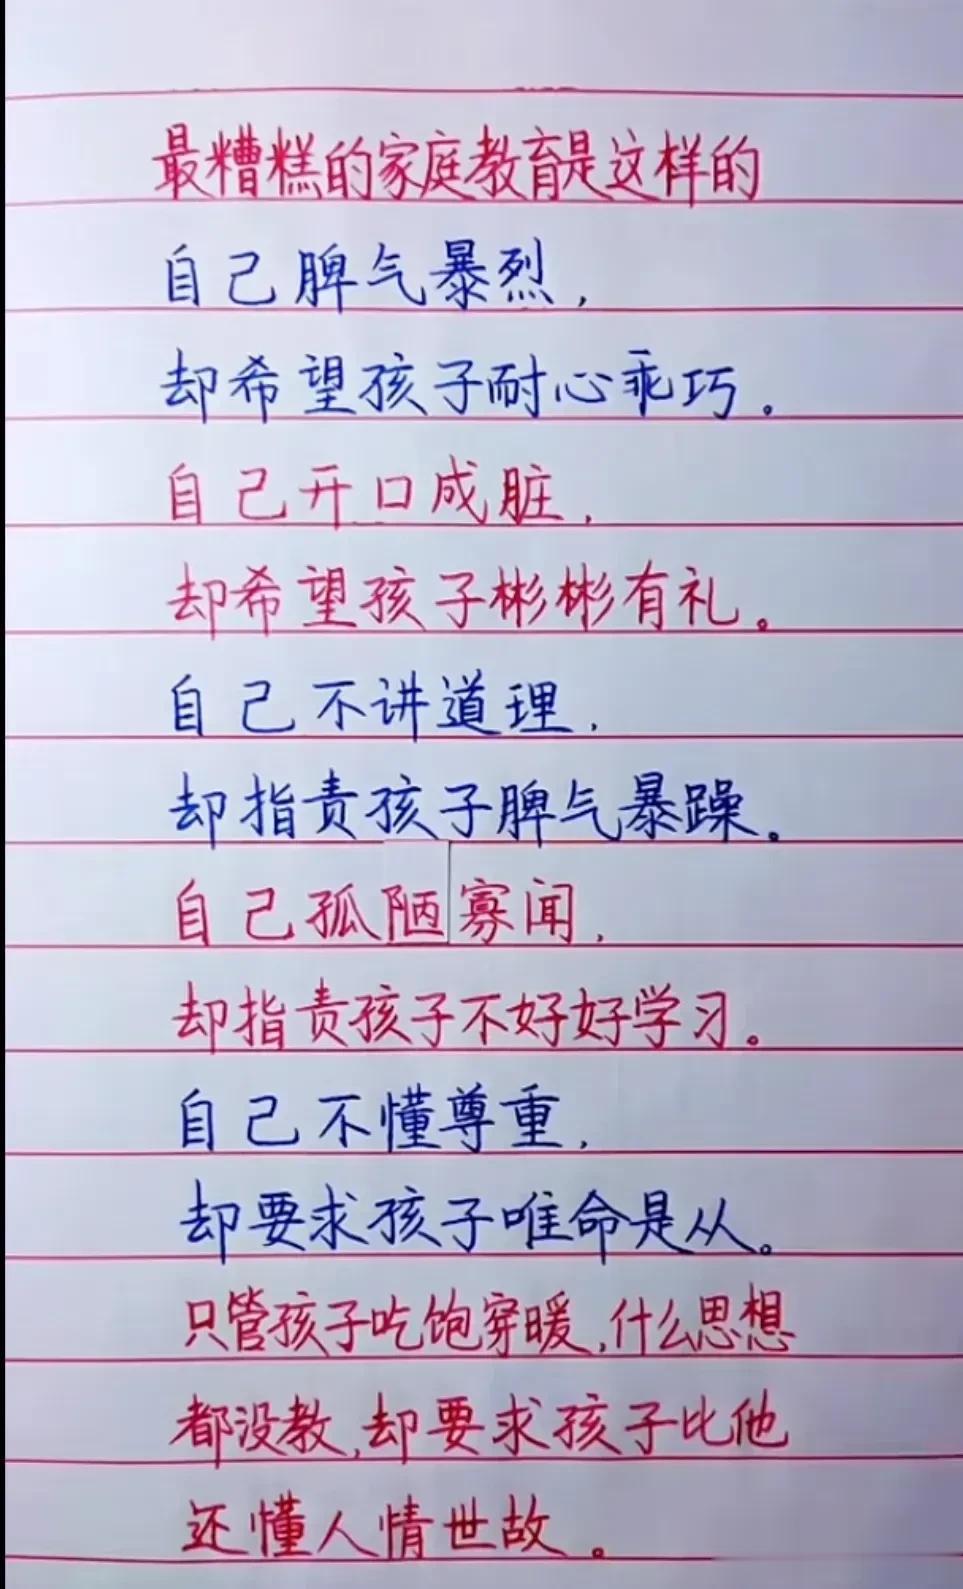 最糟糕的家庭教育是这样的
自己脾气暴烈,
却希望孩子耐心乖巧。
自己开口成脏,
却希望孩子彬彬有礼。
自己不讲道理,
却指责孩子脾气暴躁。
自己孤陋寡闻,
却指责孩子不好好学习。
自己不懂尊重,
却要求孩子唯命是从。
只管孩子吃饱穿暖,什么思想
都没教,却要求孩子比他
还懂人情世故。